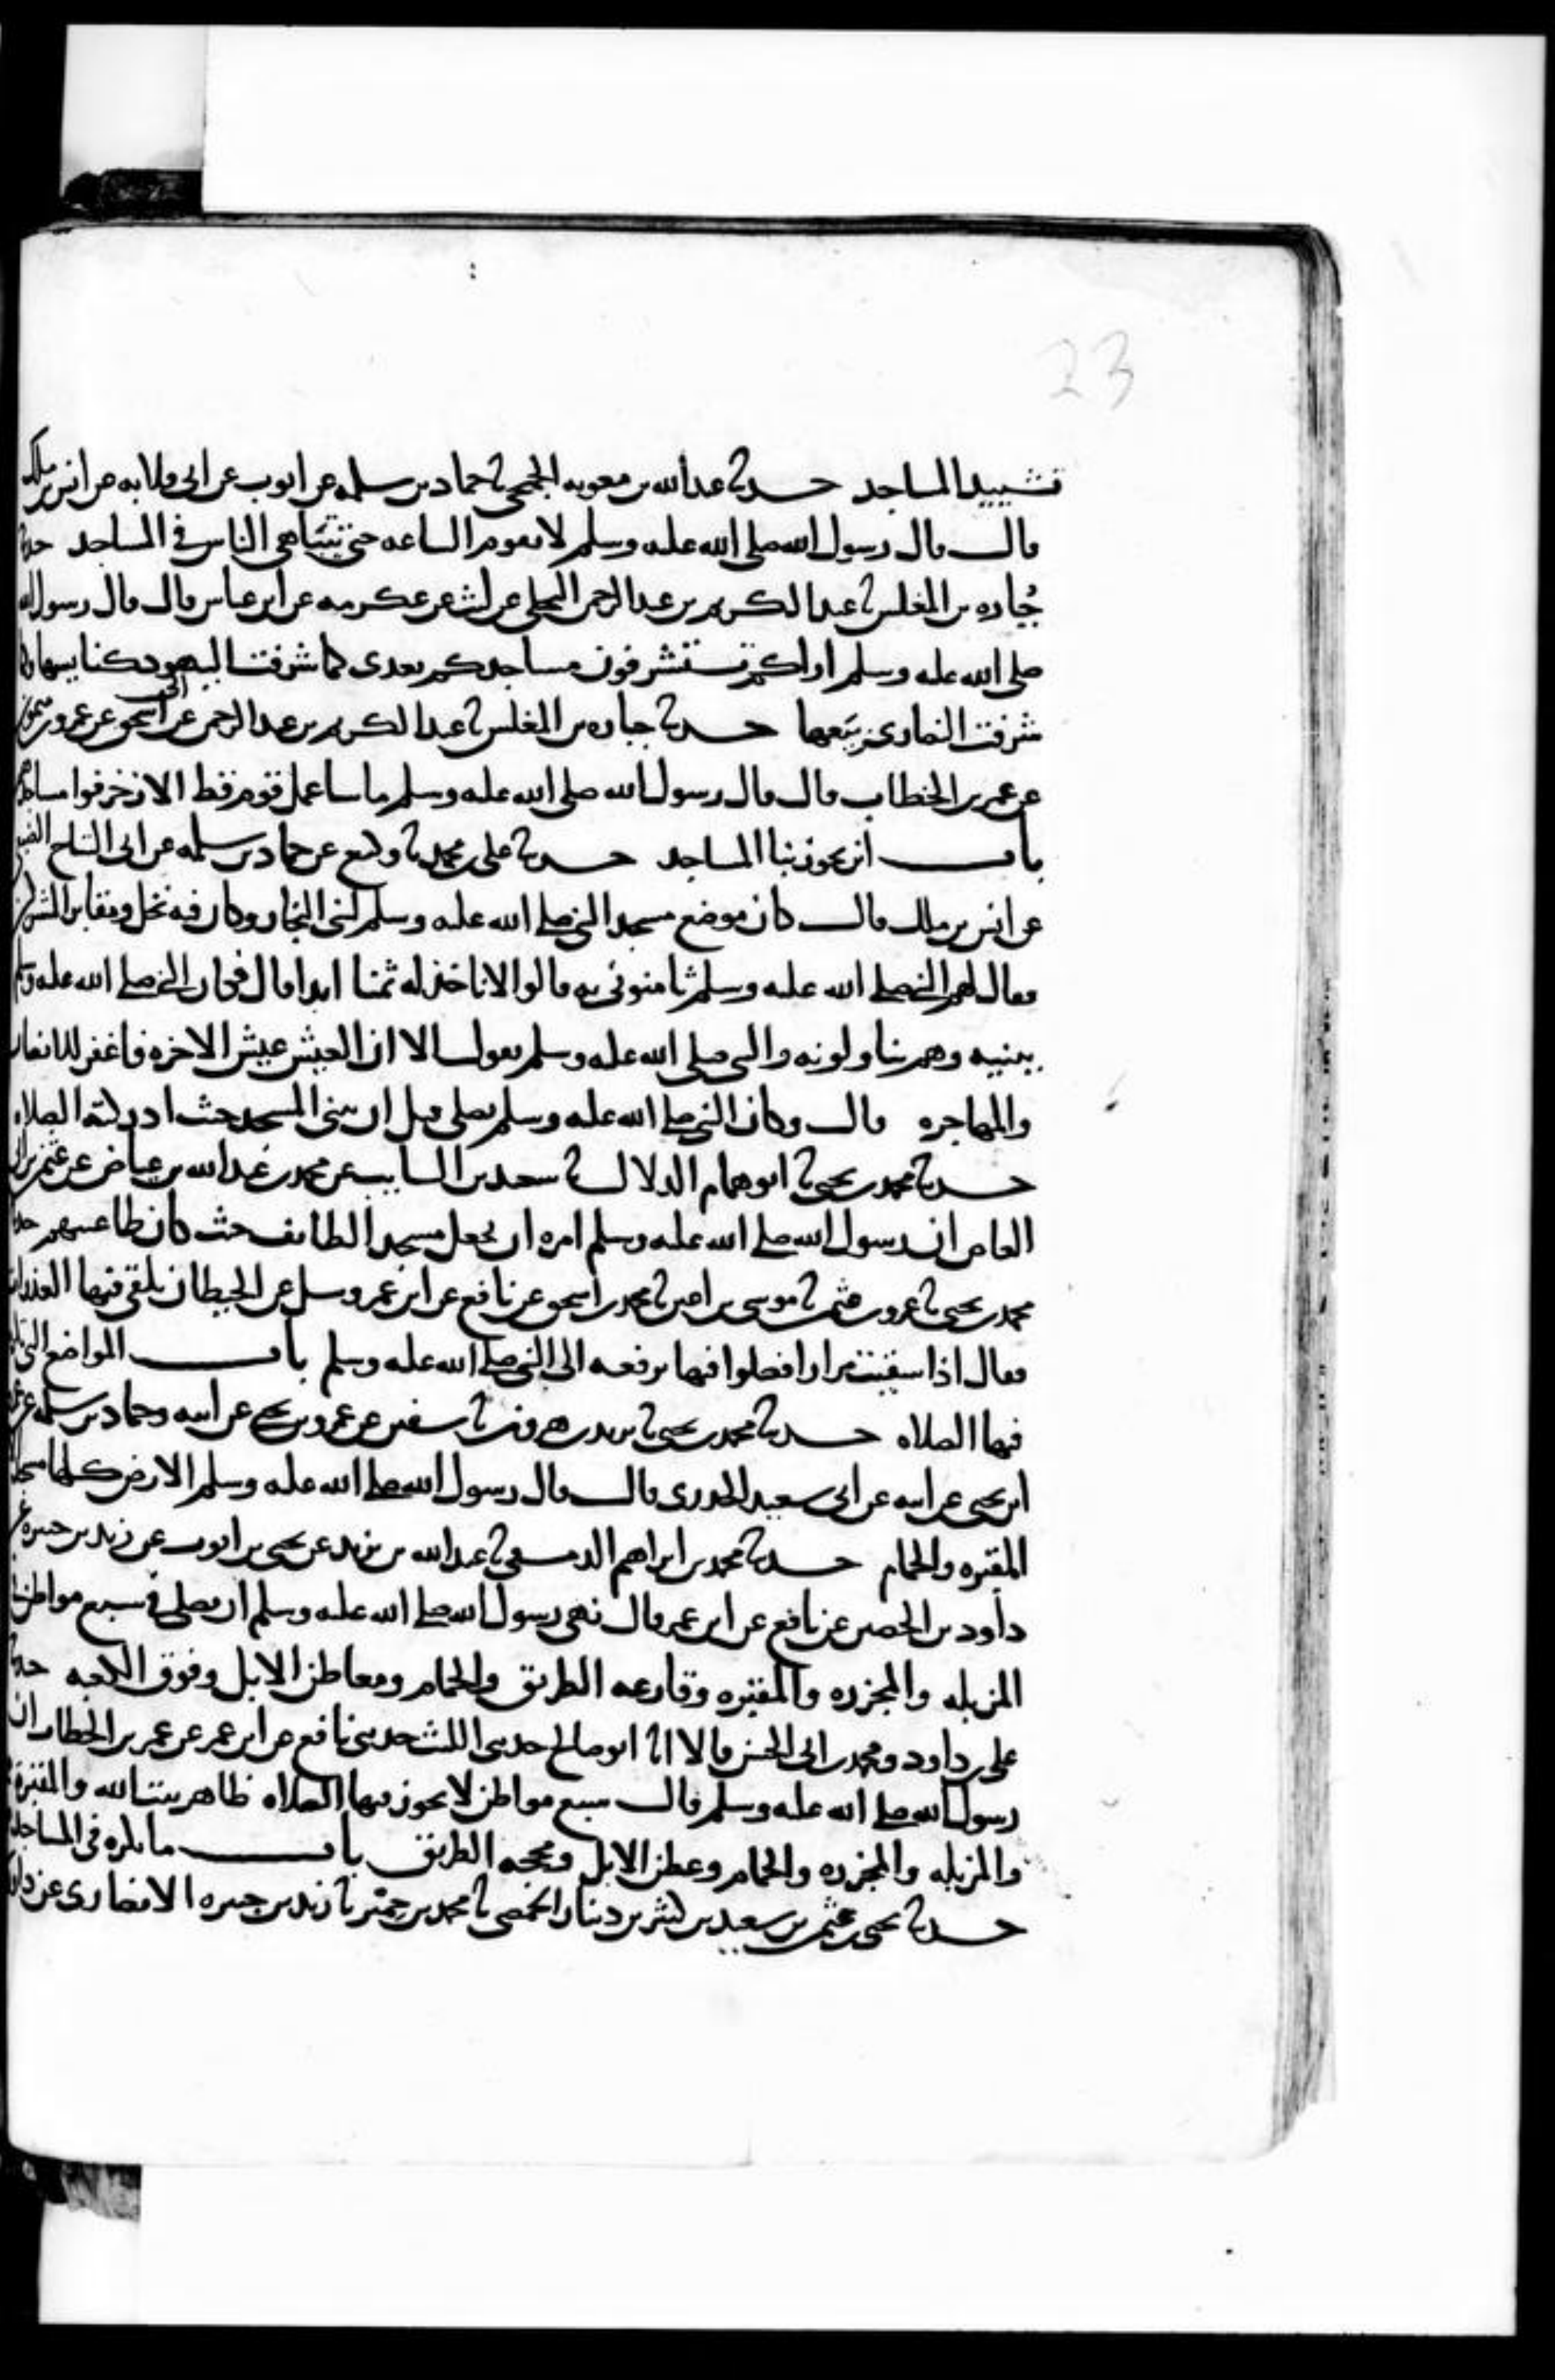 23
تشييد المساجد حدثنا عبد الله بن معويه الجمحي ثنا حماد بن سلمه عن ايوب عن ابي قلابه عن انس بن ملك
قال قال رسول الله صلى الله عليه وسلم لا تقوم الساعه حتى يتباهى الناس في المساجد حدثنا
جُباره بن المغلس ثنا عبد الكريم بن عبد الرحمن البجلي عن ليث عن عكرمه عن ابن عباس قال قال رسول الله
صلى الله عليه وسلم اراكم تستشرفون مساجدكم بعدي كما شرفت اليهود كنايسها وكما
شرفت النصارى بيعها حدثنا جباره بن المغلس ثنا عبد الكريم بن عبد الرحمن عن ابي اسحق عن عمرو بن ميمون
عن عمر بن الخطاب قال قال رسول الله صلى الله عليه وسلم ما ساء عمل قوم قط الا زخرفوا مساجدهم
باب اين يجوز بنا المساجد حدثنا علي بن محمد ثنا وكيع عن حماد بن سلمه عن ابي التياح الضبعي
عن انس بن ملك قال كان موضع مسجد النبي صلى الله عليه وسلم لبني النجار وكان فيه نخل ومقابر المشركين
فقال لهم النبي صلى الله عليه وسلم ثامنوني به قالوا لا ناخذ له ثمنا ابدا قال فكان النبي صلى الله عليه وسلم
يبنيه وهم يناولونه والنبي صلى الله عليه وسلم يقول الا ان العيش عيش الاخره فاغفر للانصار
والمهاجره قال وكان النبي صلى الله عليه وسلم يصلي قبل ان يبنى المسجد حيث ادركته الصلاه
حدثنا محمد بن يحيى ثنا ابو همام الدلال ثنا سعيد بن السايب عن محمد بن عبد الله بن عياض عن عثمن بن ابي
العاص ان رسول الله صلى الله عليه وسلم امره ان يجعل مسجد الطايف حيث كان طاغيتهم حدثنا
محمد بن يحيى ثنا عمرو بن عثمن ثنا موسى بن اعين ثنا محمد بن اسحق عن نافع عن ابن عمر وسل عن الحيطان يلقى فيها العذرات
فقال اذا سقيت مرارا فصلوا فيها يرفعه الى النبي صلى الله عليه وسلم باب المواضع التي تكره
فيها الصلاه حدثنا محمد بن يحيى ثنا يزيد بن هرون ثنا سفين عن عمرو بن يحيى عن ابيه وحماد بن سلمه عن عمرو
ابن يحيى عن ابيه عن ابي سعيد الخدري قال قال رسول الله صلى الله عليه وسلم الارض كلها مسجد الا
المقبره والحمام حدثنا محمد بن ابراهيم الدمسقي ثنا عبد الله بن يزيد عن يحيى بن ايوب عن زيد بن جبيره عن
داود بن الحصين عن نافع عن ابن عمر قال نهى رسول الله صلى الله عليه وسلم ان يصلى في سبع مواطن في
المزبله والمجزره والمقبره وقارعه الطريق والحمام ومعاطن الابل وفوق الكعبه حدثنا
علي بن داود ومحمد بن ابي الحسن قالا انا ابو صالح حدثني الليث حدثني نافع عن ابن عمر عن عمر بن الخطاب ان
رسول الله صلى الله عليه وسلم قال سبع مواطن لا يجوز فيها الصلاه ظاهر بيت الله والمقبرة
والمزبله والمجزره والحمام وعطن الابل ومحجه الطريق باب ما يكره في المساجد
حدثنا يحيى بن عثمن بن سعيد بن كثير بن دينار الحمصي ثنا محمد بن حمير ثنا زيد بن جبيره الانصاري عن داود